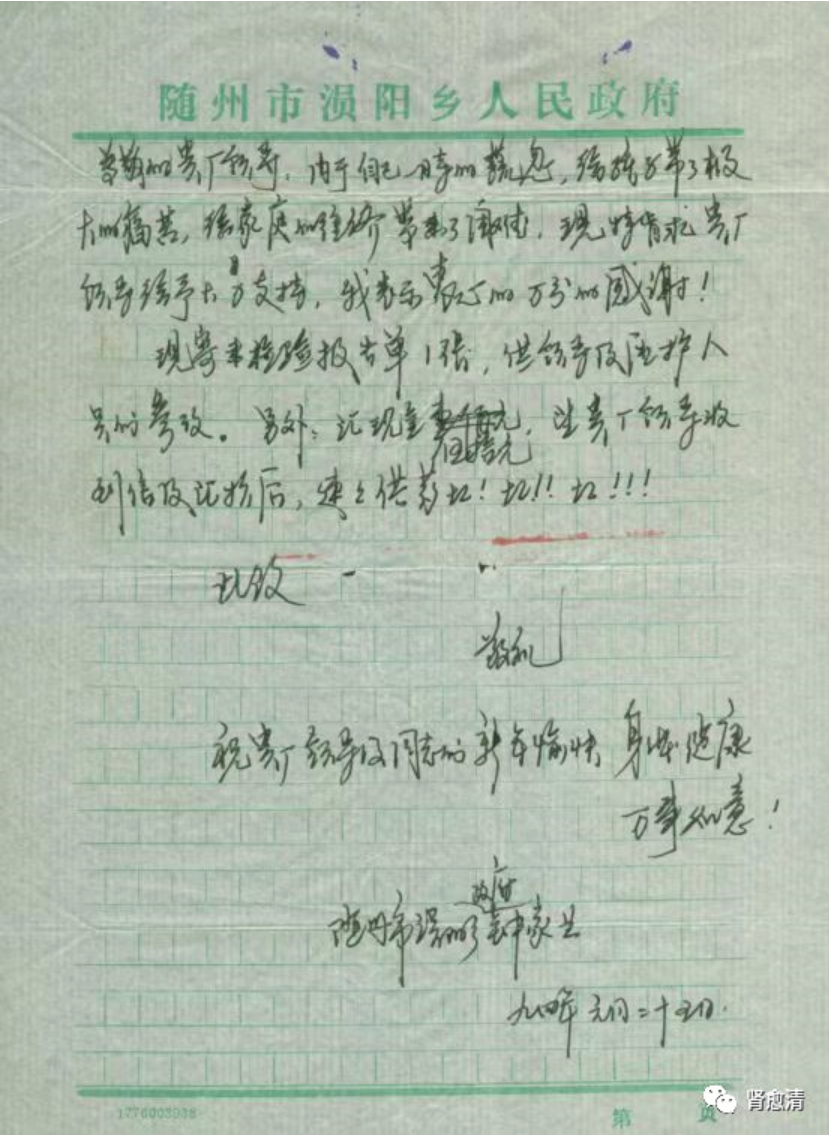 随州市涢阳乡人民政府
尊敬的贵厂领导，由于自己一时的疏忽，给孩子带了极
大的痛苦，给家庭的经济带来了，现特请求贵厂
领导给予大力支持，我表示衷心的万分的感谢！
现寄来检验报告单1张，供领导及医护人
员的参攷。另外：汇现金伍拾元，望贵厂领导收
到信及汇款后，速速供药好！好！！好！！！
此致
敬礼
祝贵厂领导及同志们新年愉快 身体健康
万事如意！
政府
随州市涢阳乡
九四年元月二十五日.
1776003938
第 页
肾愈清